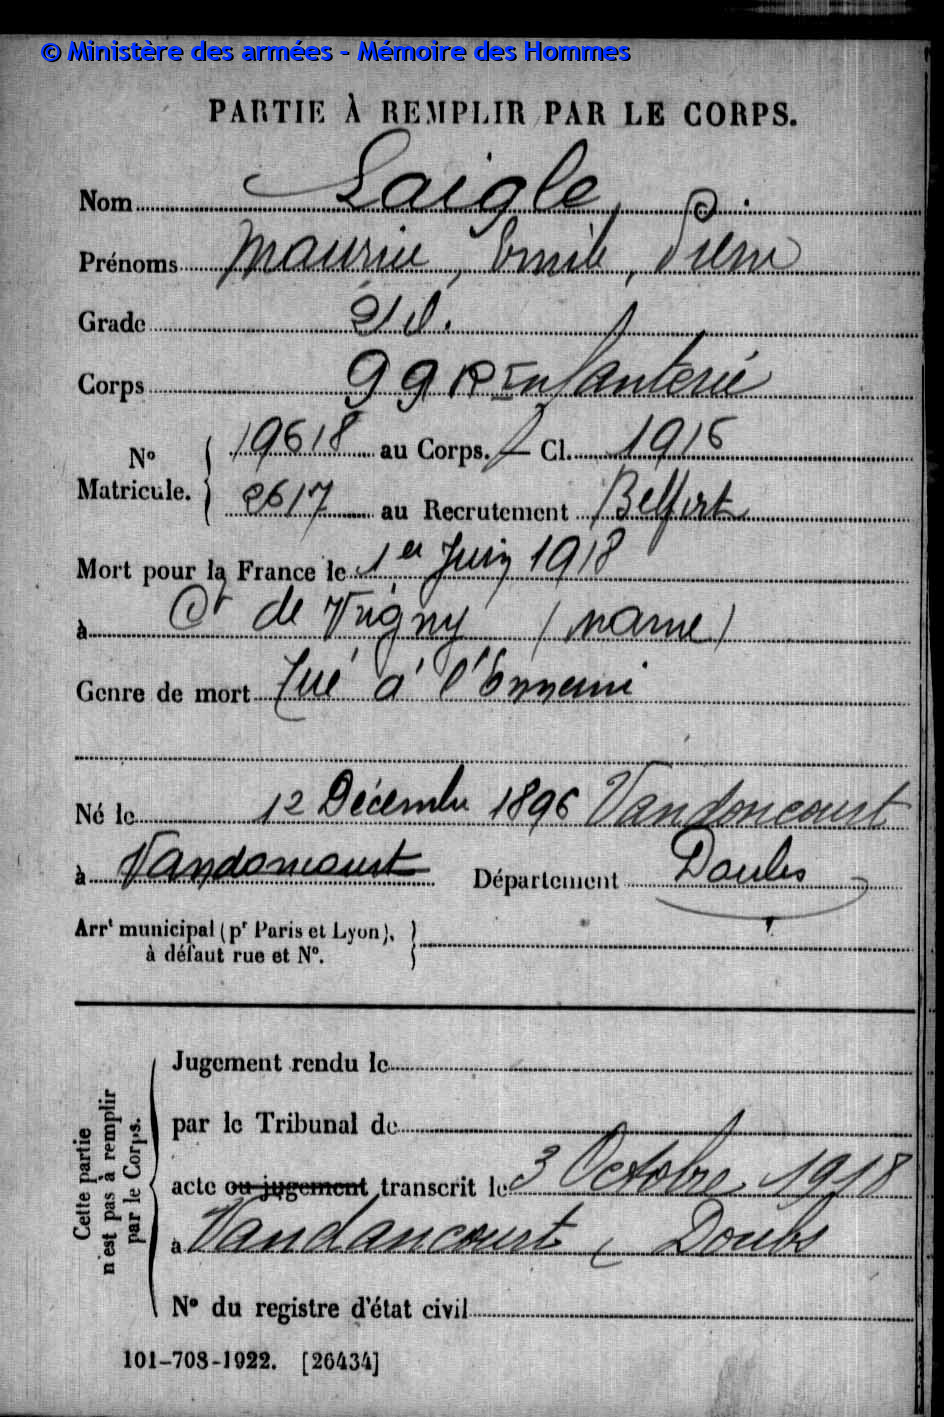 © Ministère des armées - Mémoire des Hommes
PARTIE À REMPLIR PAR LE CORPS.
Nom Laigle
Prénoms Maurice, Emile, Pierre
Grade 2e Cl.
Corps 99 R Infanterie
No Matricule. 19618 au Corps. Cl. 1916
2617 au Recrutement Belfort
Mort pour la France le 1er Juin 1918
à de Vrigny (Marne)
Genre de mort Tué à l'Ennemi
Né le 12 Décembre 1896 Vandoncourt
à Vandoncourt Département Doubs
Arrt municipal (pr Paris et Lyon),
à défaut rue et No.
Cette partie
n'est pas à remplir
par le Corps.
Jugement rendu le
par le Tribunal de
acte ou jugement transcrit le 3 Octobre 1918
à Vandancourt, Doubs
No du registre d'état civil
101-708-1922. [26434]